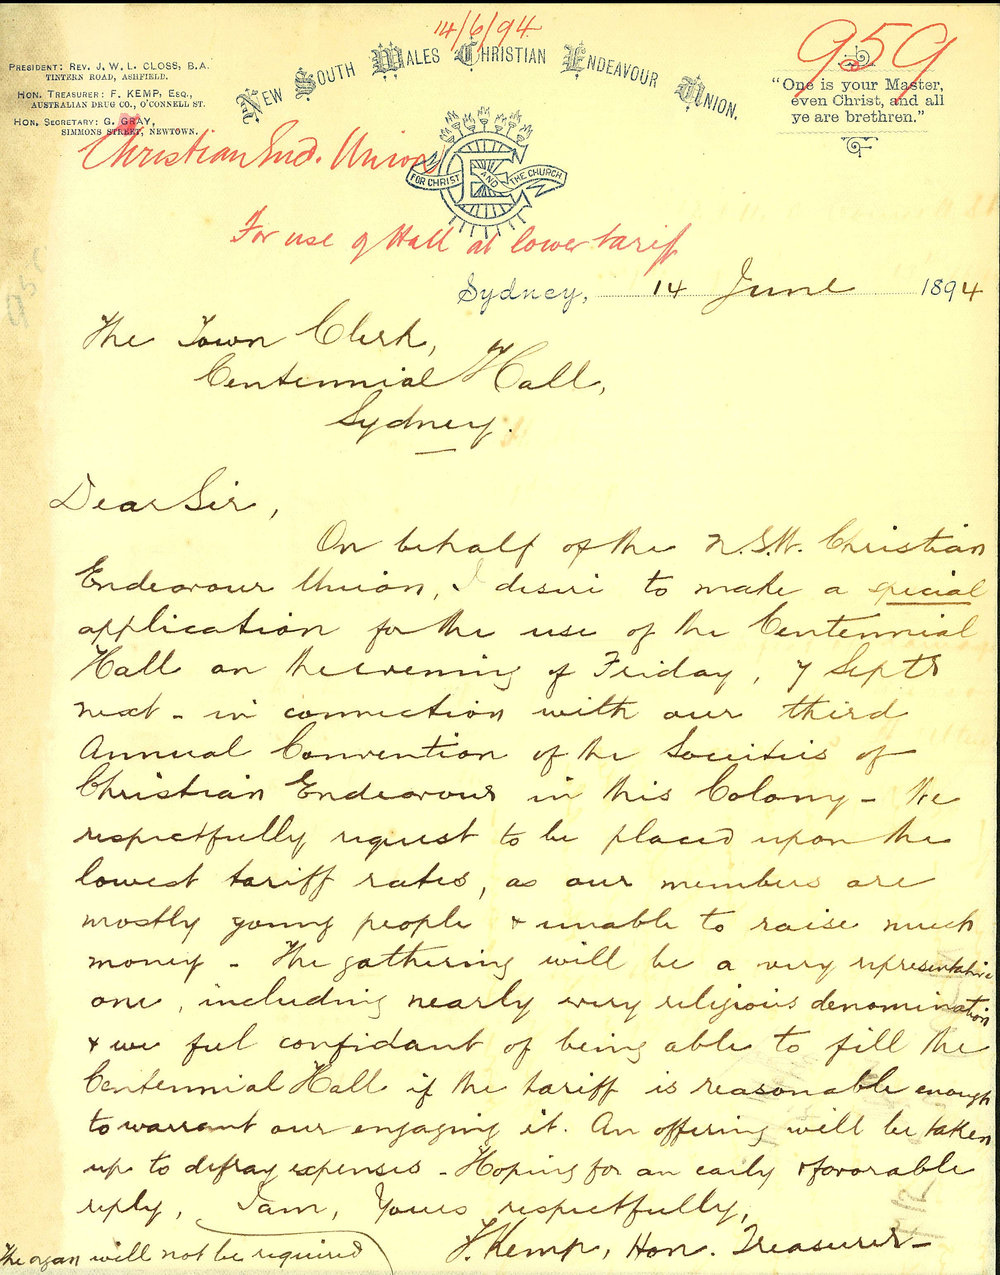 14/6/94
959
PRESIDENT: REV. J. W. L. CLOSS, B.A.
TINTERN ROAD, ASHFIELD.
HON. TREASURER: F. KEMP, ESQ.,
AUSTRALIAN DRUG CO., O'CONNELL ST.
HON. SECRETARY: G. GRAY,
SIMMONS STREET, NEWTOWN.
New South Wales Christian Endeavour Union.
"One is your Master,
even Christ, and all
ye are brethren."
Christian End. Union
FOR CHRIST AND THE CHURCH
CE
For use of Hall at lower tariff
Sydney, 14 June 1894
The Town Clerk,
Centennial Hall,
Sydney.
Dear Sir,
On behalf of the N.S.W. Christian
Endeavour Union, I desire to make a special
application for the use of the Centennial
Hall on the evening of Friday, 7 Septr
next - in connection with our third
Annual Convention of the Societies of
Christian Endeavour in this Colony - We
respectfully request to be placed upon the
lowest tariff rates, as our members are
mostly young people & unable to raise much
money - The gathering will be a very representative
one, including nearly every religious denomination
& we feel confidant of being able to fill the
Centennial Hall if the tariff is reasonable enough
to warrant our engaging it. An offering will be taken
up to defray expenses - Hoping for an early & favorable
reply, I am, Yours respectfully,
F. Kemp, Hon. Treasurer -
The organ will not be required